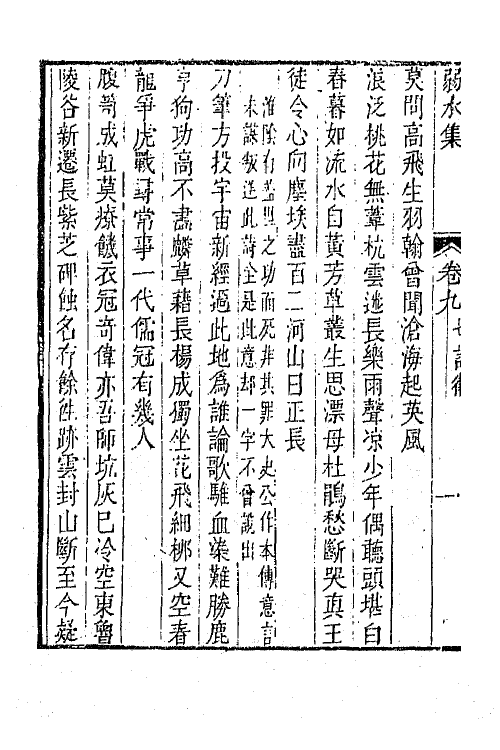 弱水集 卷九 七言律 一
莫問高飛生羽翰曾聞滄海起英風
浪泛桃花無葦杭雲迷長樂雨聲凉少年偶聽頭堪白
春暮如流水自黃芳草叢生思漂母杜鵑愁斷哭真王
徒令心向塵埃盡百二河山日正長
淮陰有蓋世之功而死非其罪太史公作本傳意言
未謀叛逆此詩全是此意却一字不曾說出
刀筆方投宇宙新經過此地為誰論歌騅血染難勝鹿
字狗功高不畫麟草藉長楊成獨坐花飛細柳又空春
龍爭虎戰尋常事一代儒冠有幾人
腹劍成虹莫療饑衣冠奇偉亦吾師坑灰已冷空東魯
陵谷新遷長紫芝碑蝕名存餘往跡雲封山斷至今疑